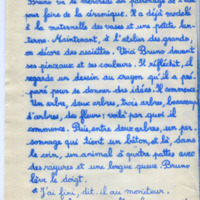 Bruno va le mercredi au patronage de
faire de la céramique. Il a déjà modelé
à la maternelle des vases et une petite lan-
terne. Maintenant, à l'atelier des grands,
on décore des assiettes. Voici Bruno devant
ses pinceaux et ses couleurs. Il réfléchit, il
regarde un dessin au crayon qu'il a pré-
paré pour se donner des idées. Il commence.
Un arbre, deux arbres, trois arbres, beaucoup
d'arbres, des fleurs : voilà par quoi il
commence. Puis, entre deux arbres, un per-
sonnage qui tient un bâton, et là, dans
le coin, un animal à quatre pattes avec
des rayures et une longue queue. Bruno
lève le doigt.
« J'ai fini, dit-il au moniteur.